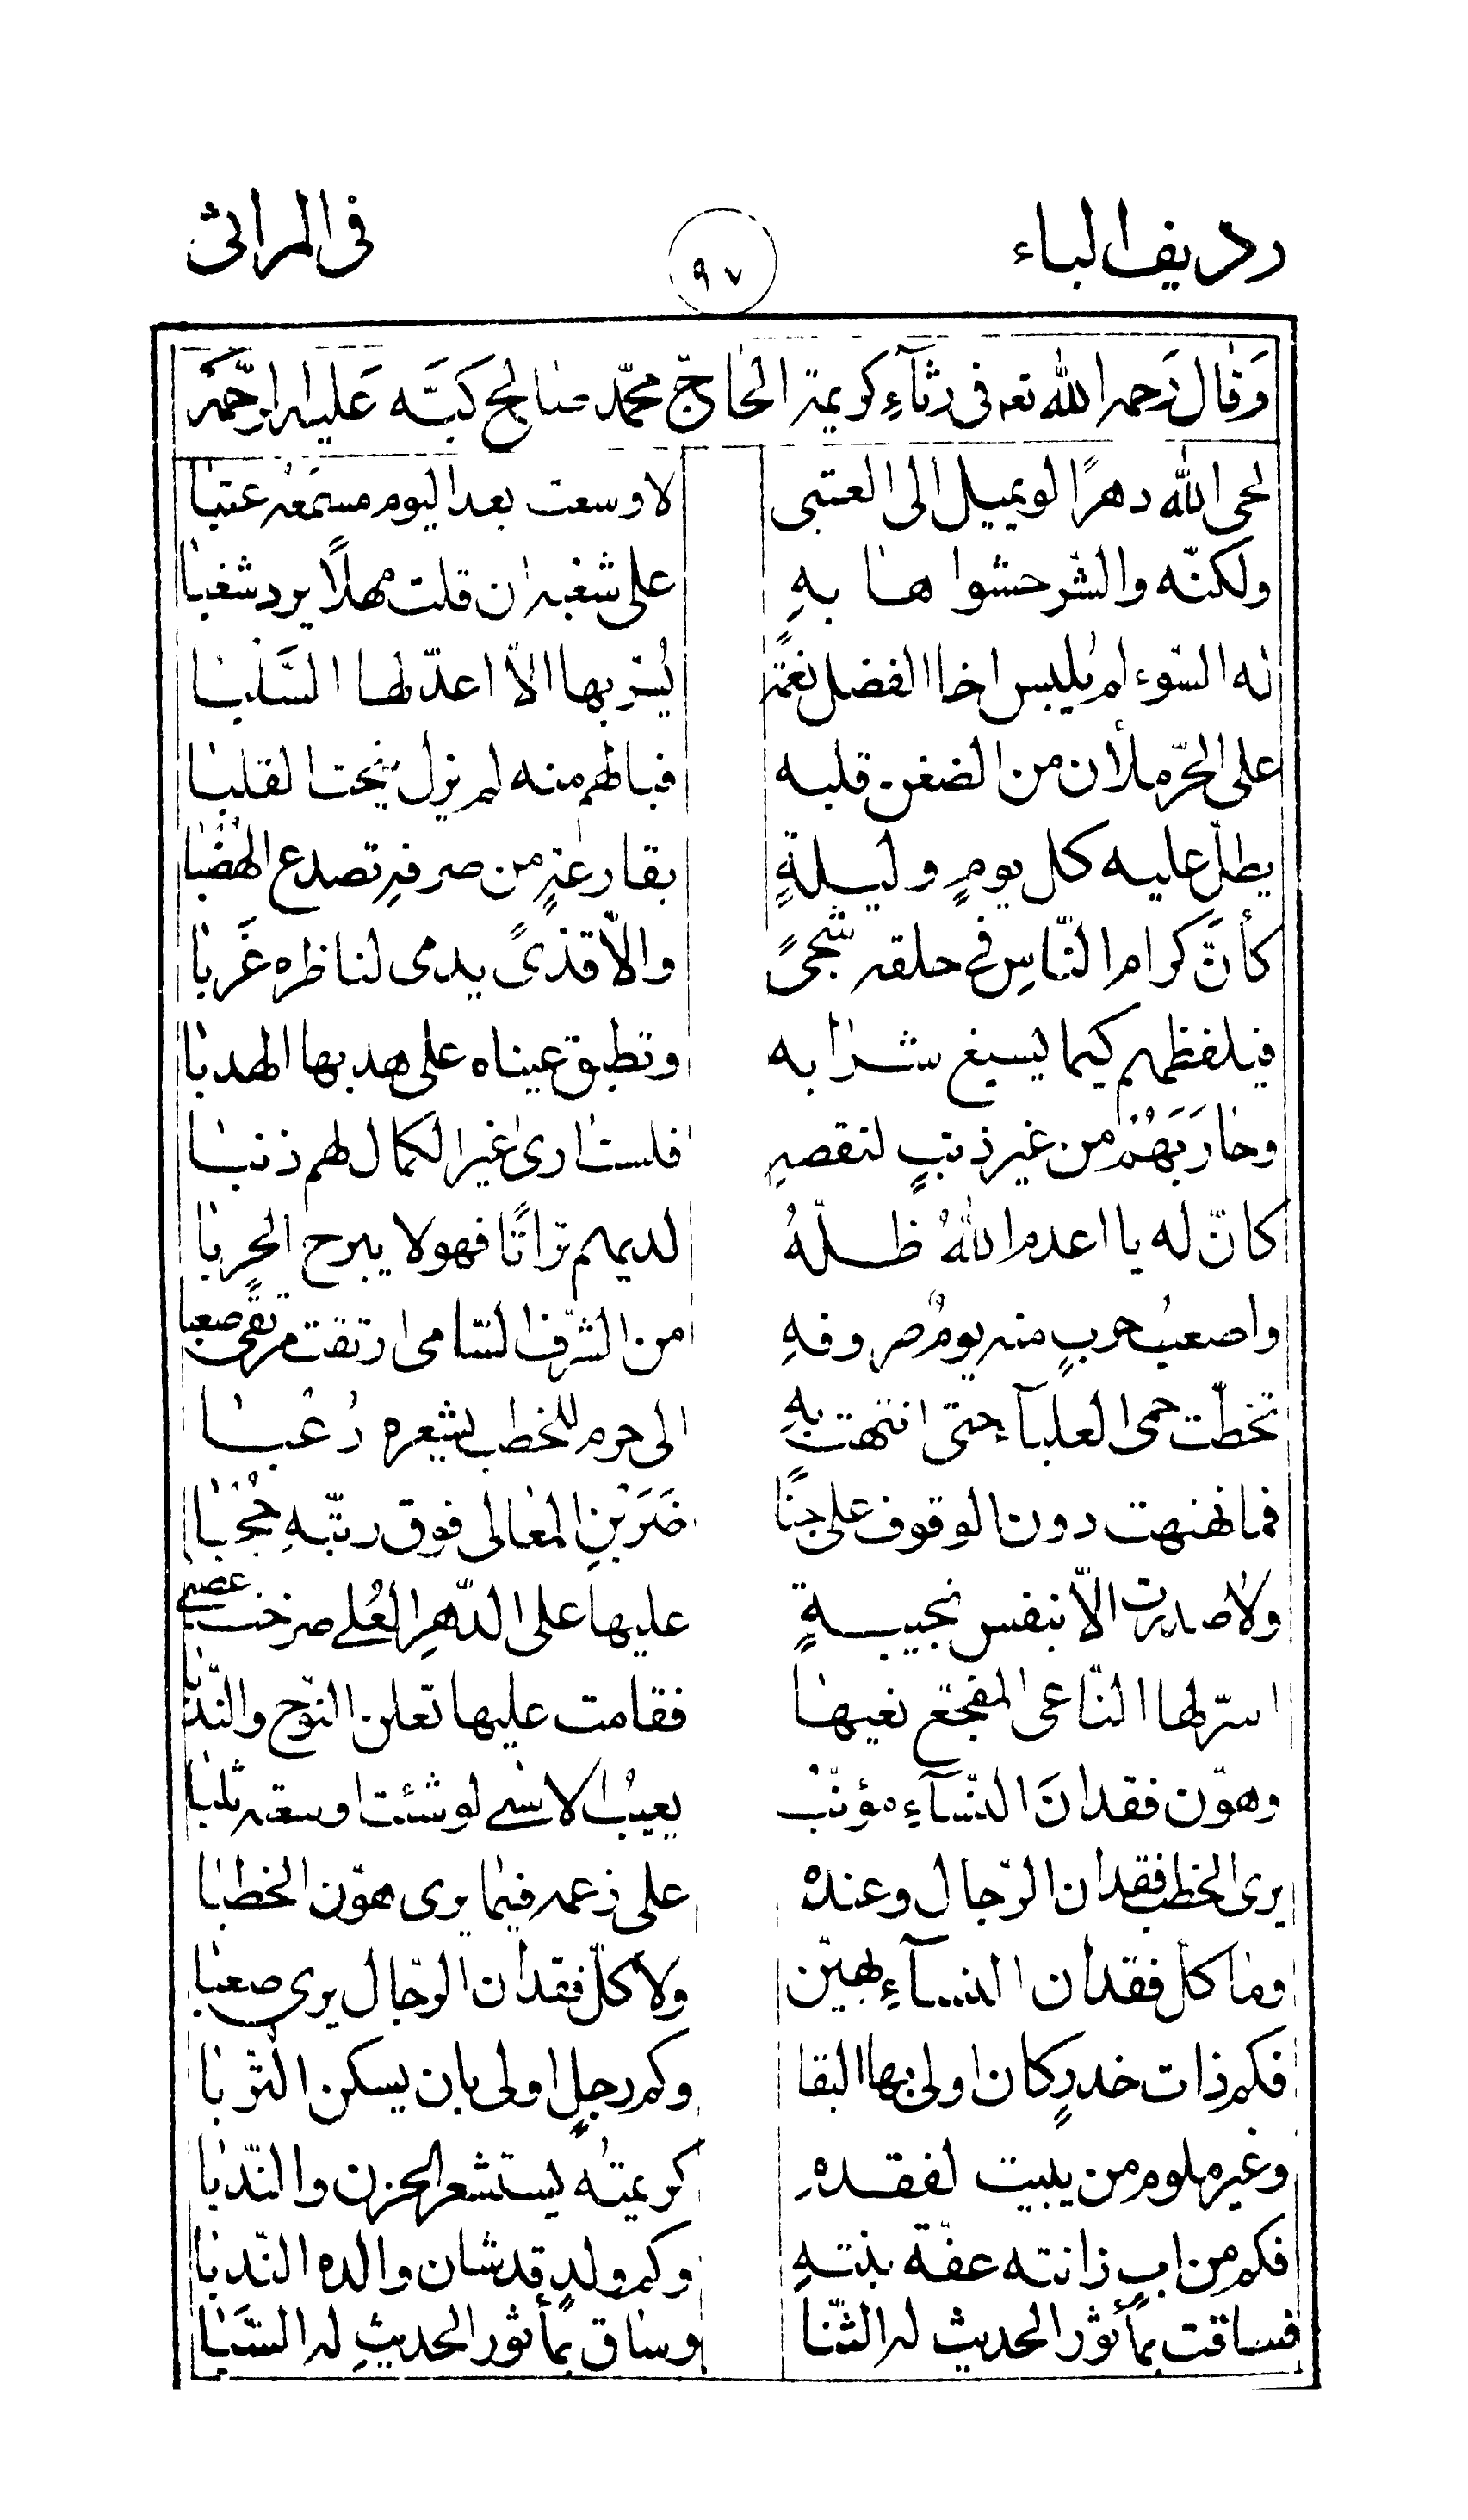 رديف الباء ٩٧ فى المراثى
وَقال رَحمه الله تعه فى رثآءِ كريمة الحاجّ محمّد صالح كبَّه عَليه الرّحمَة
لحى الله دهرًا لو يميل الى العتبى لاوسعت بعد اليوم مسمَعه عتبا
ولكنّه والشّر حشوا هابهِ على شغبه ان قلت مهلًا يرد شغبا
له السّوء لم يُلبس اخا الفضل نعمَةً يُسّر بها الاّ اعدّ لها السَّلبا
على الحّر ملأان من الضغن قلبه فبالهم منه لم يزل ينحت القلبا
يطلّ عليه كل يومٍ وليلةٍ بقارعةٍ من صرفهِ تصدع الهُضْبا
كأنَّ كرام النّاسِ فى حلقه شجىً والاّ قذىً يدمى لناظره غَربا
فيلفظهم كيما يسيغ شرابه وتطبق عيناه على هدبها الهدبا
وحارَبَهُمْ من غير ذنبٍ لنقصهِ فلست ارى غير الكمال لهم ذنبا
كانّ له يا اعدم اللهُ ظلّهُ لديهم تراثًا فهو لا يبرح الحربا
واصعبُ حربٍ منه يومُ صروفهِ من الشّرف السّامى ارتقت مرتقىً صعبا
تخطّت حمى العلياءِ حتى انتهت بهِ الى حرم للخطب يشعره رُعْبا
فما نهنهت دون الوقوف على خبًا ضَرَبْنِ المعالى فوق ربّتهِ حُجْبا
ولا صدرت الاّ بنفس نجيبةٍ عليها على الدّهرِ العُلى صرخت عضبى
اسرّ لها النّاعى المفجّع نعيها فقامت عليها تعلن النّوح والنّدبا
وهوّن فقدانَ النّسآءِ مؤنّبْ يعيبُ الاسى لو شئت اوسعته ثلبا
يرى الخطب فقدان الرّجال وعنده على زعمه فيما يرى هوّن الخطبا
وما كلّ فقدان النسآءِ بهيّن ولا كلّ فقدان الرّجال يرى صعبا
فكم ذات خدرٍ كان اولى بها البقا وكم رجلٍ اولى بان يسكن التّربا
وغير ملوم من يبيت لفقدهِ كريمته يستشعر الحزن والنّدبا
فكم من ابٍ زانته عفّة بنتهِ وكم ولدٍ قد شان والده النّدبا
فساقت بمأثور الحديث له الثّنا وساق بمأثور الحديثِ له السَّبا